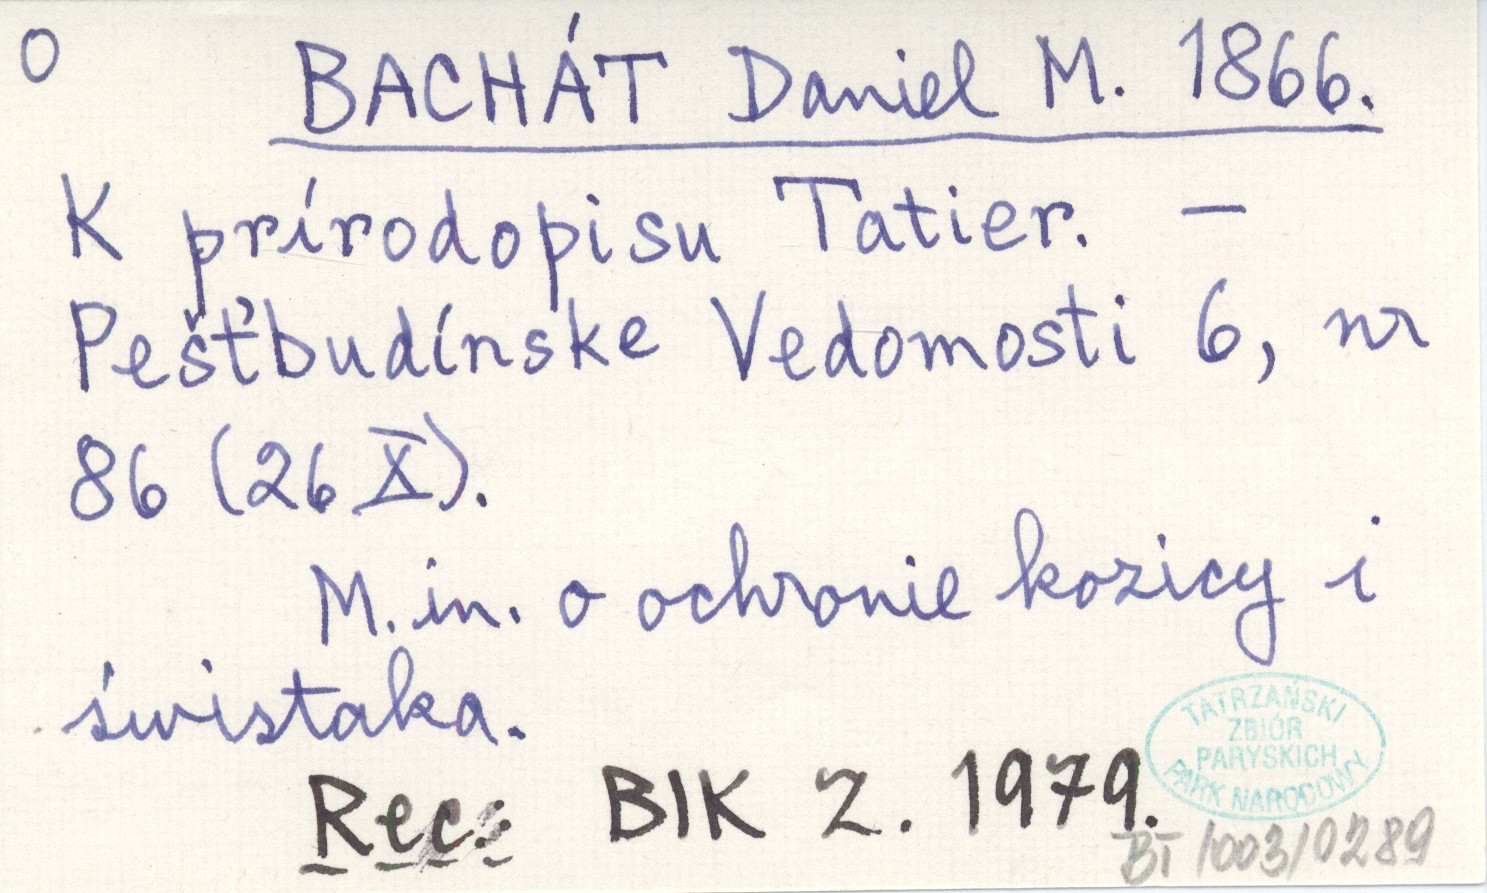 O
BACHÁT Daniel M. 1866.
K prírodopisu Tatier. —
Pešťbudínske Vedomosti 6, nr
86 (26 X).
M. in. o ochronie kozicy i
świstaka.
TATRZAŃSKI
ZBIÓR
PARYSKICH
PARK NARODOWY
Rec: BIK Z. 1979.
BT/003/0289